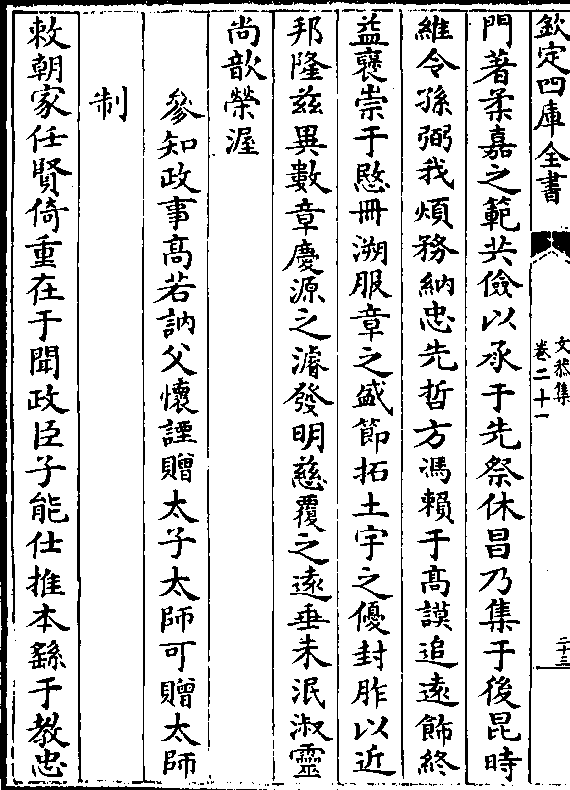 欽定四庫全書
文恭集
卷二十一
二十三
門著柔嘉之範共儉以承于先祭休昌乃集于後昆時
維令孫弼我煩務納忠先哲方馮賴于髙謨追遠飾終
益襃崇于愍冊溯服章之盛節拓土宇之優封胙以近
邦隆兹異數章慶源之濬發明慈覆之遠垂未泯淑靈
尚歆榮渥
參知政事髙若訥父懷諲贈太子太師可贈太師
制
敕朝家任賢倚重在于聞政臣子能仕推本繇于教忠